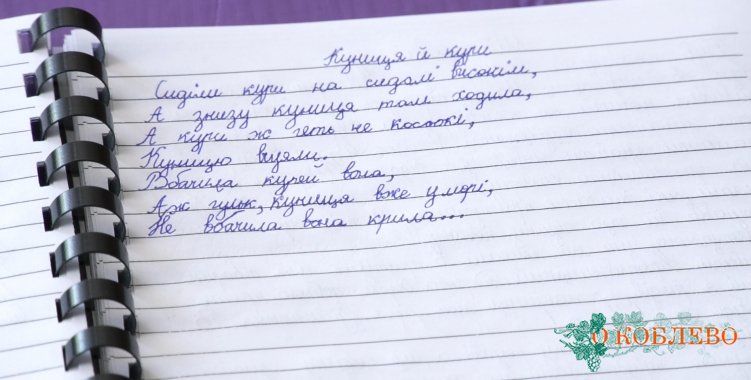 Куниця й кури
Сиділи кури на сидалі високім,
А знизу куниця там ходила,
А кури ж геть не косоокі,
Куницю вздріли.
Вбачила курей вона,
Аж гульк, куниця вже у морі,
Не вбачила вона крила...
О КОБЛЕВО